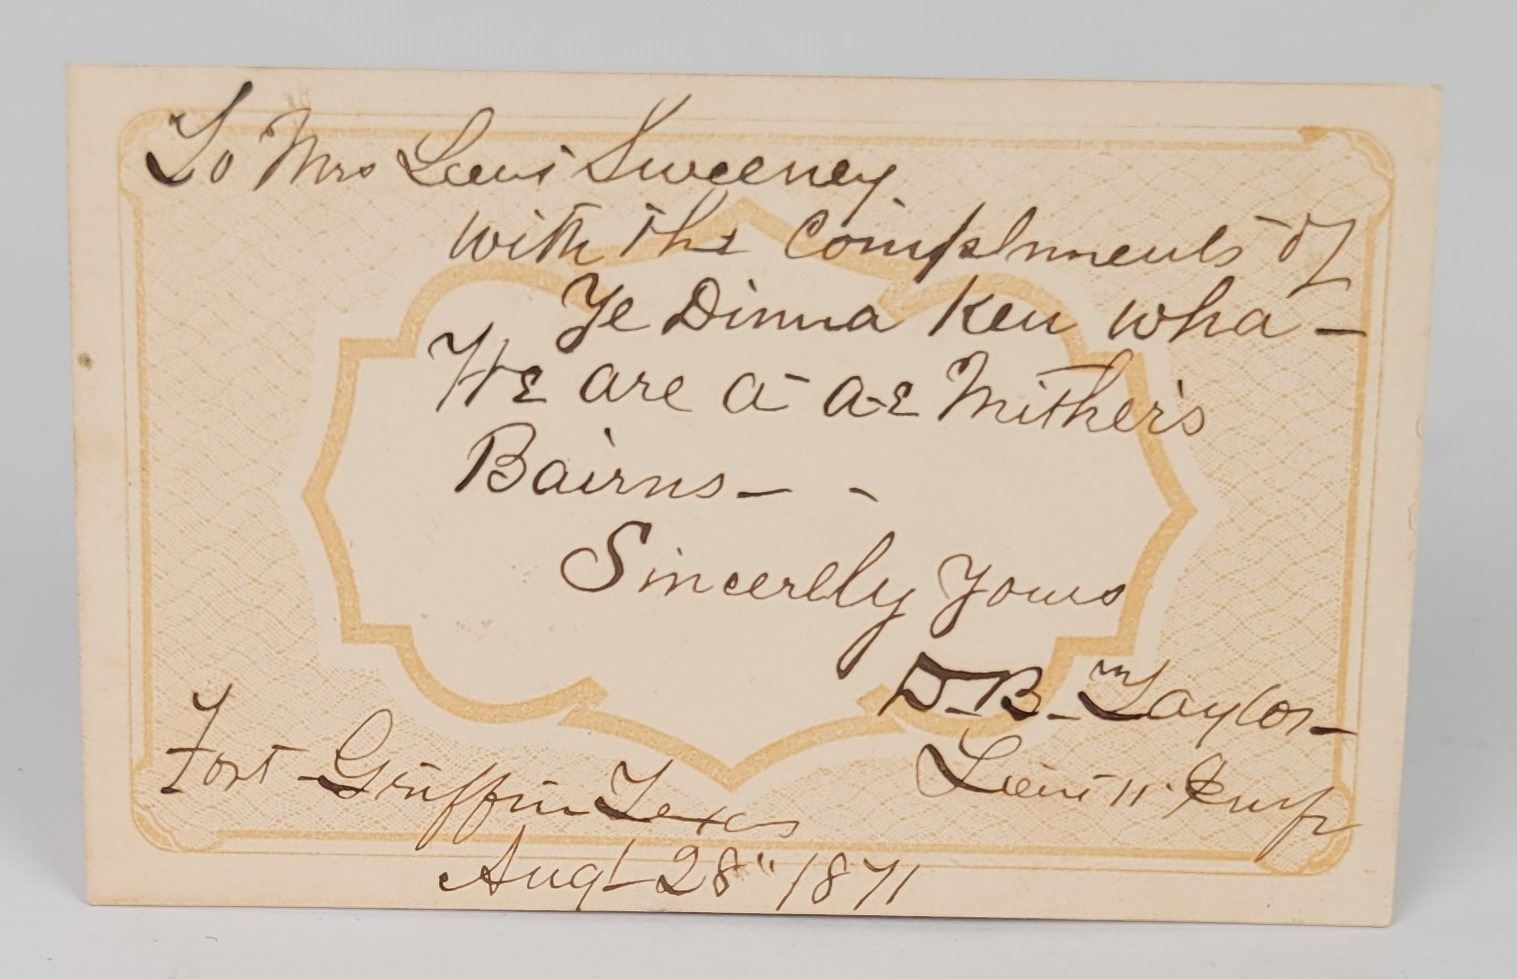 To Mrs Lieut Sweeney
with the compliments of
Ye Dinna Ken wha —
We are a' ae Mither's
Bairns — -
Sincerely Yours
D. B. Taylor —
Lieut 11" Infy
Fort Griffin Texas
Augt 28" 1871